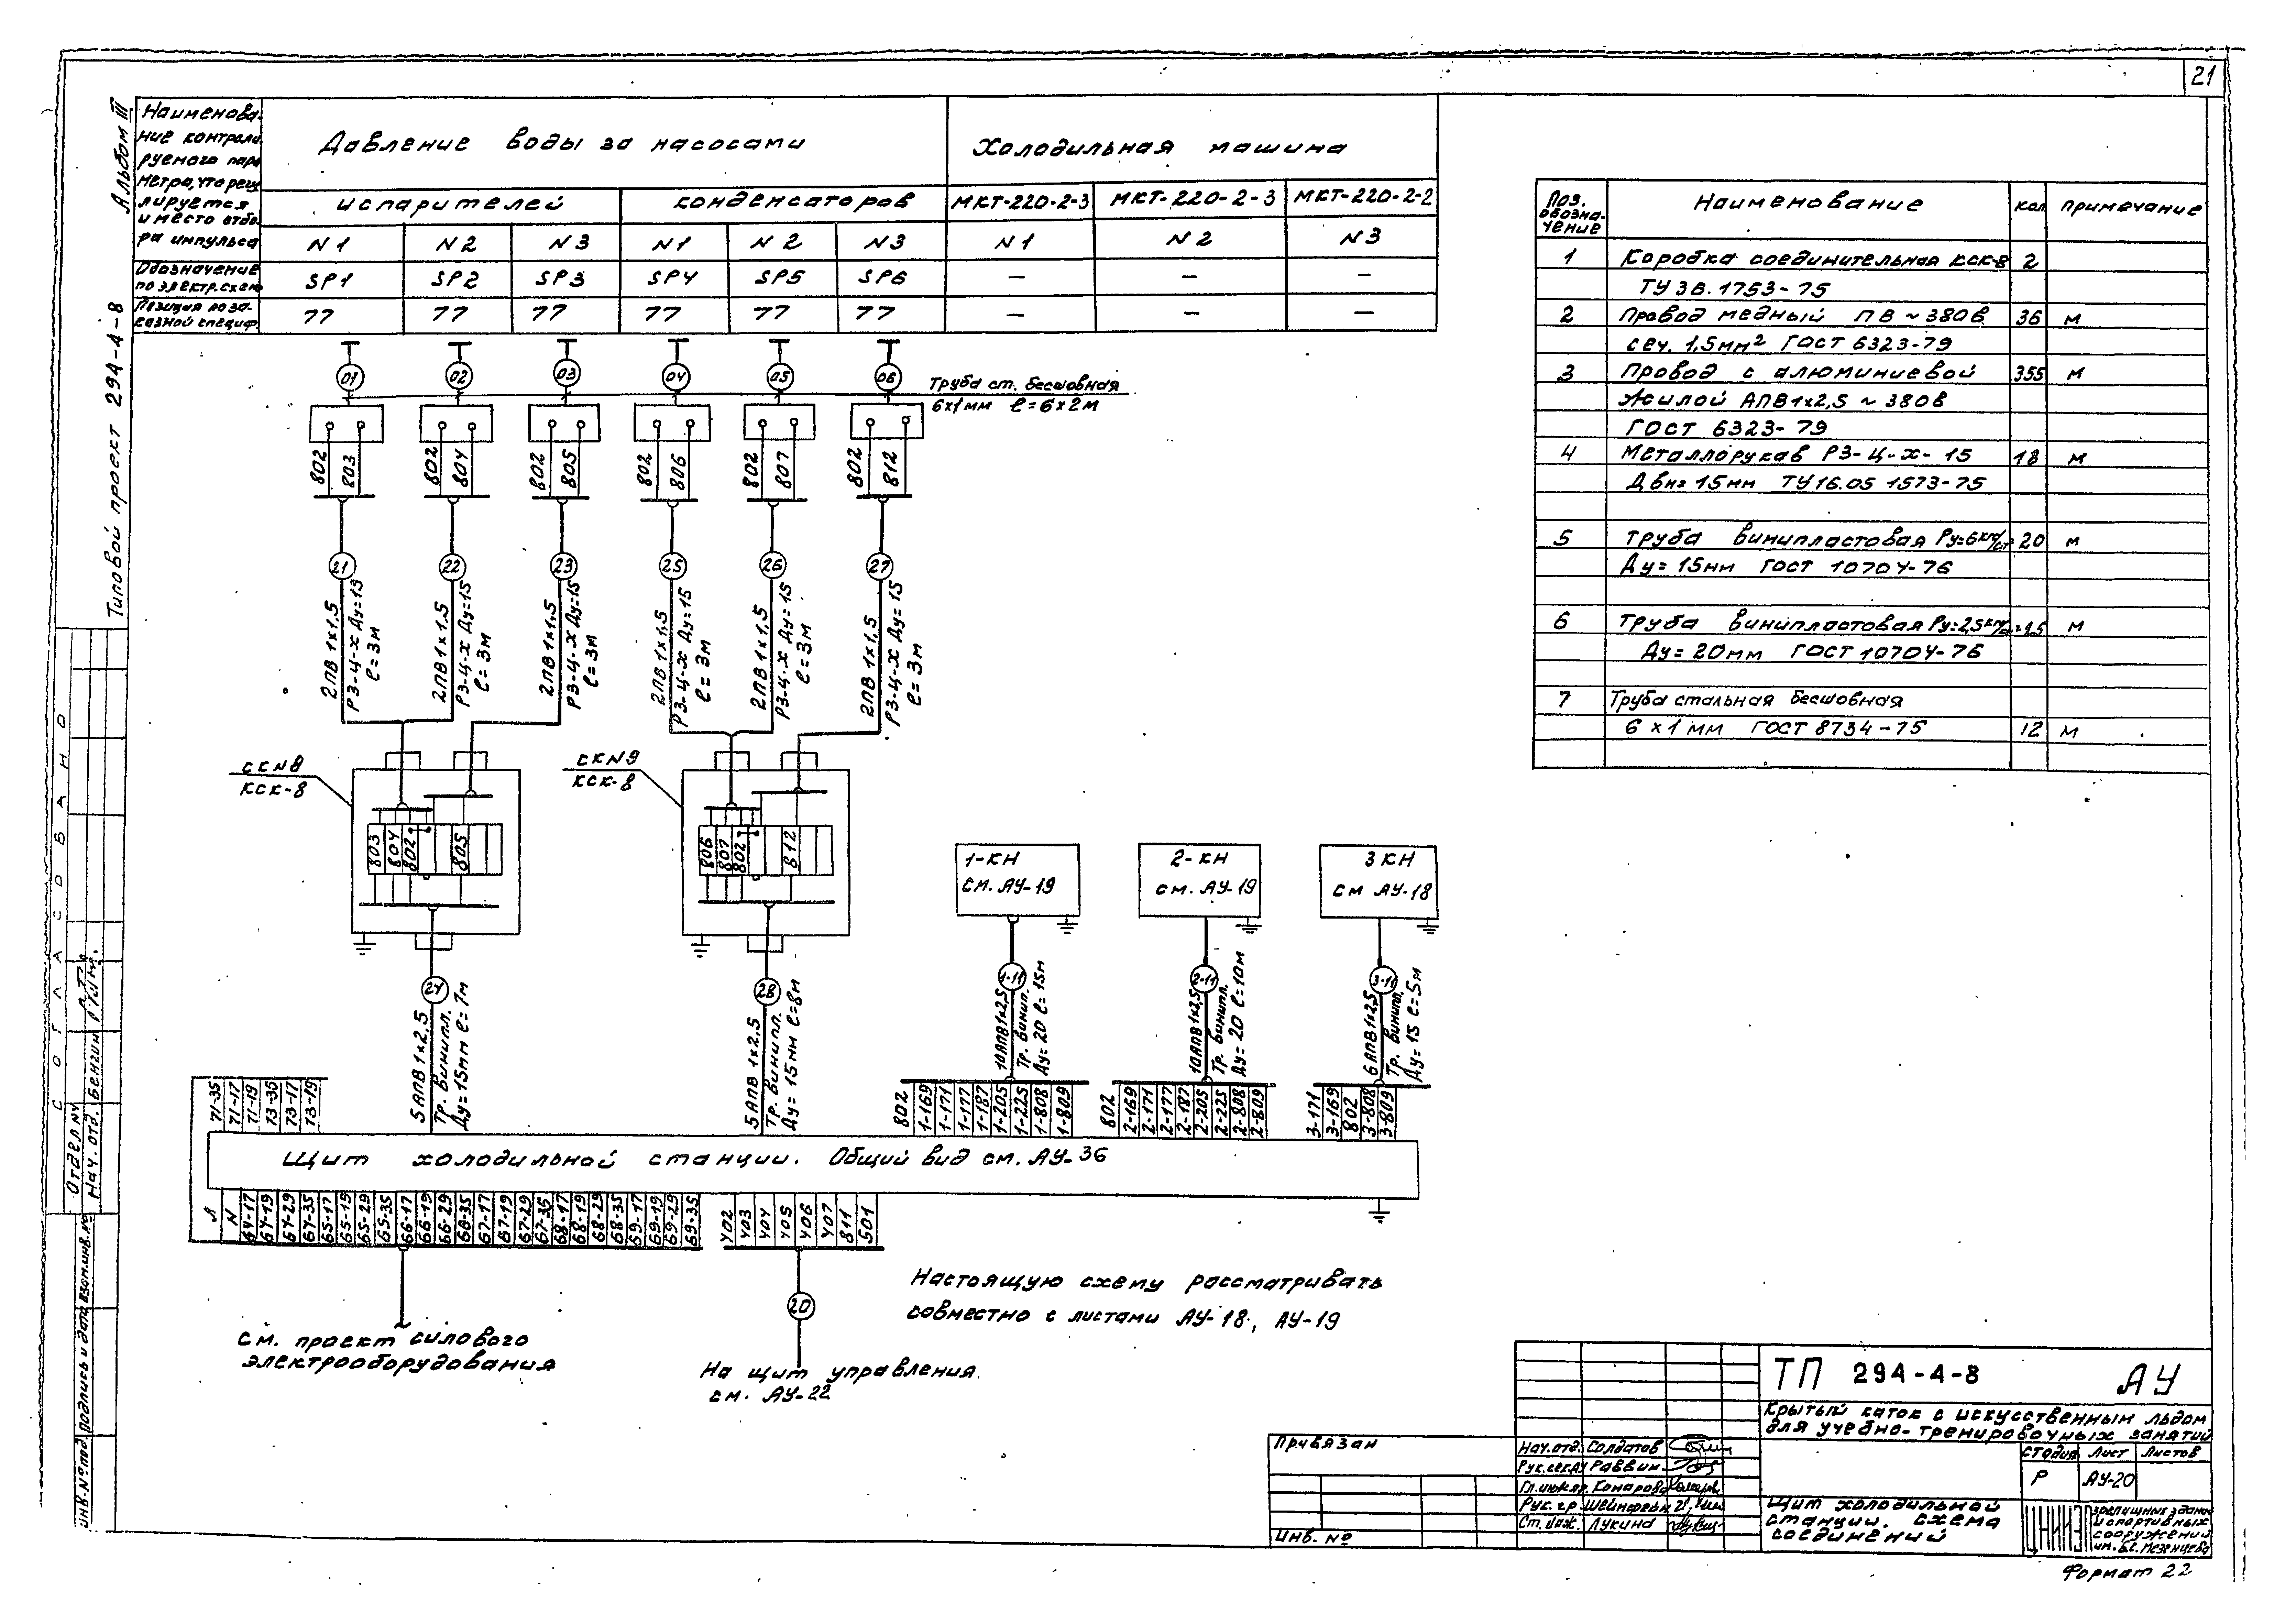 21
Альбом III
Типовой проект 294-4-8
Наименова-
ние контроли
руемого пара
метра, что рец
лируется
и место отбо-
ра импульса
Давление воды за насосами
Холодильная машина
испарителей
конденсаторов
МКТ-220-2-3
МКТ-220-2-3
МКТ-220-2-2
N1
N2
N3
N1
N2
N3
N1
N2
N3
Обозначение
по электр.схем
SP1
SP2
SP3
SP4
SP5
SP6
–
–
–
Позиция по за-
казной специф.
77
77
77
77
77
77
–
–
–
01
02
03
04
05
06
Труба ст. бесшовная
6х1мм ℓ=6х2м
802
803
802
804
802
805
802
806
802
807
802
812
21
22
23
25
26
27
2ПВ 1х1,5
РЗ-Ц-Х Ду=15
ℓ=3м
2ПВ 1х1,5
РЗ-Ц-Х Ду=15
ℓ=3м
2ПВ 1х1,5
РЗ-Ц-Х Ду=15
ℓ=3м
2ПВ 1х1,5
РЗ-Ц-Х Ду=15
ℓ=3м
2ПВ 1х1,5
РЗ-Ц-Х Ду=15
ℓ=3м
2ПВ 1х1,5
РЗ-Ц-Х Ду=15
ℓ=3м
СКN8
КСК-8
СКN9
КСК-8
803
804
802
805
806
807
802
812
1-КН
см. АУ-19
2-КН
см. АУ-19
3 КН
см АУ-18
24
5 АПВ 1х2,5
Тр. винипл.
Ду=15мм ℓ=7м
28
5 АПВ 1х2,5
Тр. винипл.
Ду=15мм ℓ=8м
1-11
10АПВ1х2,5
Тр. винипл.
Ду=20 ℓ=15м
2-11
10АПВ1х2,5
Тр. винипл.
Ду=20 ℓ=10м
3-11
6 АПВ 1х2,5
Тр. винипл.
Ду=15 ℓ=5м
71-35
71-17
71-19
73-35
73-17
73-19
802
1-169
1-171
1-177
1-187
1-205
1-225
1-808
1-809
802
2-169
2-171
2-177
2-187
2-205
2-225
2-808
2-809
3-171
3-169
802
3-808
3-809
Щит холодильной станции. Общий вид см. АУ-36
Л
N
64-17
64-19
64-29
64-35
65-17
65-19
65-29
65-35
66-17
66-19
66-29
66-35
67-17
67-19
67-29
67-35
68-17
68-19
68-29
68-35
69-17
69-19
69-29
69-35
402
403
404
405
406
407
811
501
20
см. проект силового
электрооборудования
На щит управления
см. АУ-22
Настоящую схему рассматривать
совместно с листами АУ-18, АУ-19
Поз.
обозна-
чение
Наименование
кол
примечание
1 Коробка соединительная КСК-8 2
ТУ 36.1753-75
2 Провод медный ПВ ~380В 36 м
сеч. 1,5мм² ГОСТ 6323-79
3 Провод с алюминиевой 355 м
жилой АПВ1х2,5 ~380В
ГОСТ 6323-79
4 Металлорукав РЗ-Ц-Х-15 18 м
Двн=15мм ТУ16.05 1573-75
5 Труба винипластовая Ру=6 20 м
Ду=15мм ГОСТ 10704-76
6 Труба винипластовая Ру=2,5 м
Ду=20мм ГОСТ 10704-76
7 Труба стальная бесшовная
6х1мм ГОСТ 8734-75 12 м
СОГЛАСОВАНО
Нач. отд. Бенгин
Инв.№подл. Подпись и дата Взам.инв.№
Привязан
Инв. №
Нач.отд. Солдатов
Рук.сек.АУ Раввин
Гл.инж.пр. Комарова
Рук. гр.
Ст. инж. Лукина
ТП 294-4-8 АУ
Крытый каток с искусственным льдом
для учебно-тренировочных занятий
стадия
Лист
Листов
Р
АУ-20
Щит холодильной
станции. схема
соединений
зрелищных зданий
и спортивных
сооружений
им. Б.С. Мезенцева
Формат 22